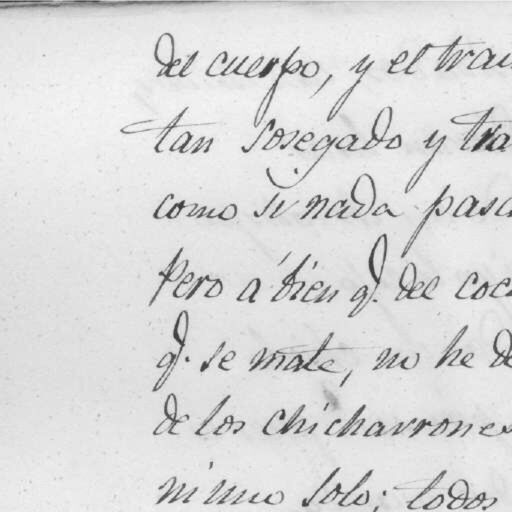 del cuerpo, y el
tan sosegado y
como si nada
Pero á bien q.
 del
q.
 se mate, no he
de los chicharrones
ni uno solo; todos